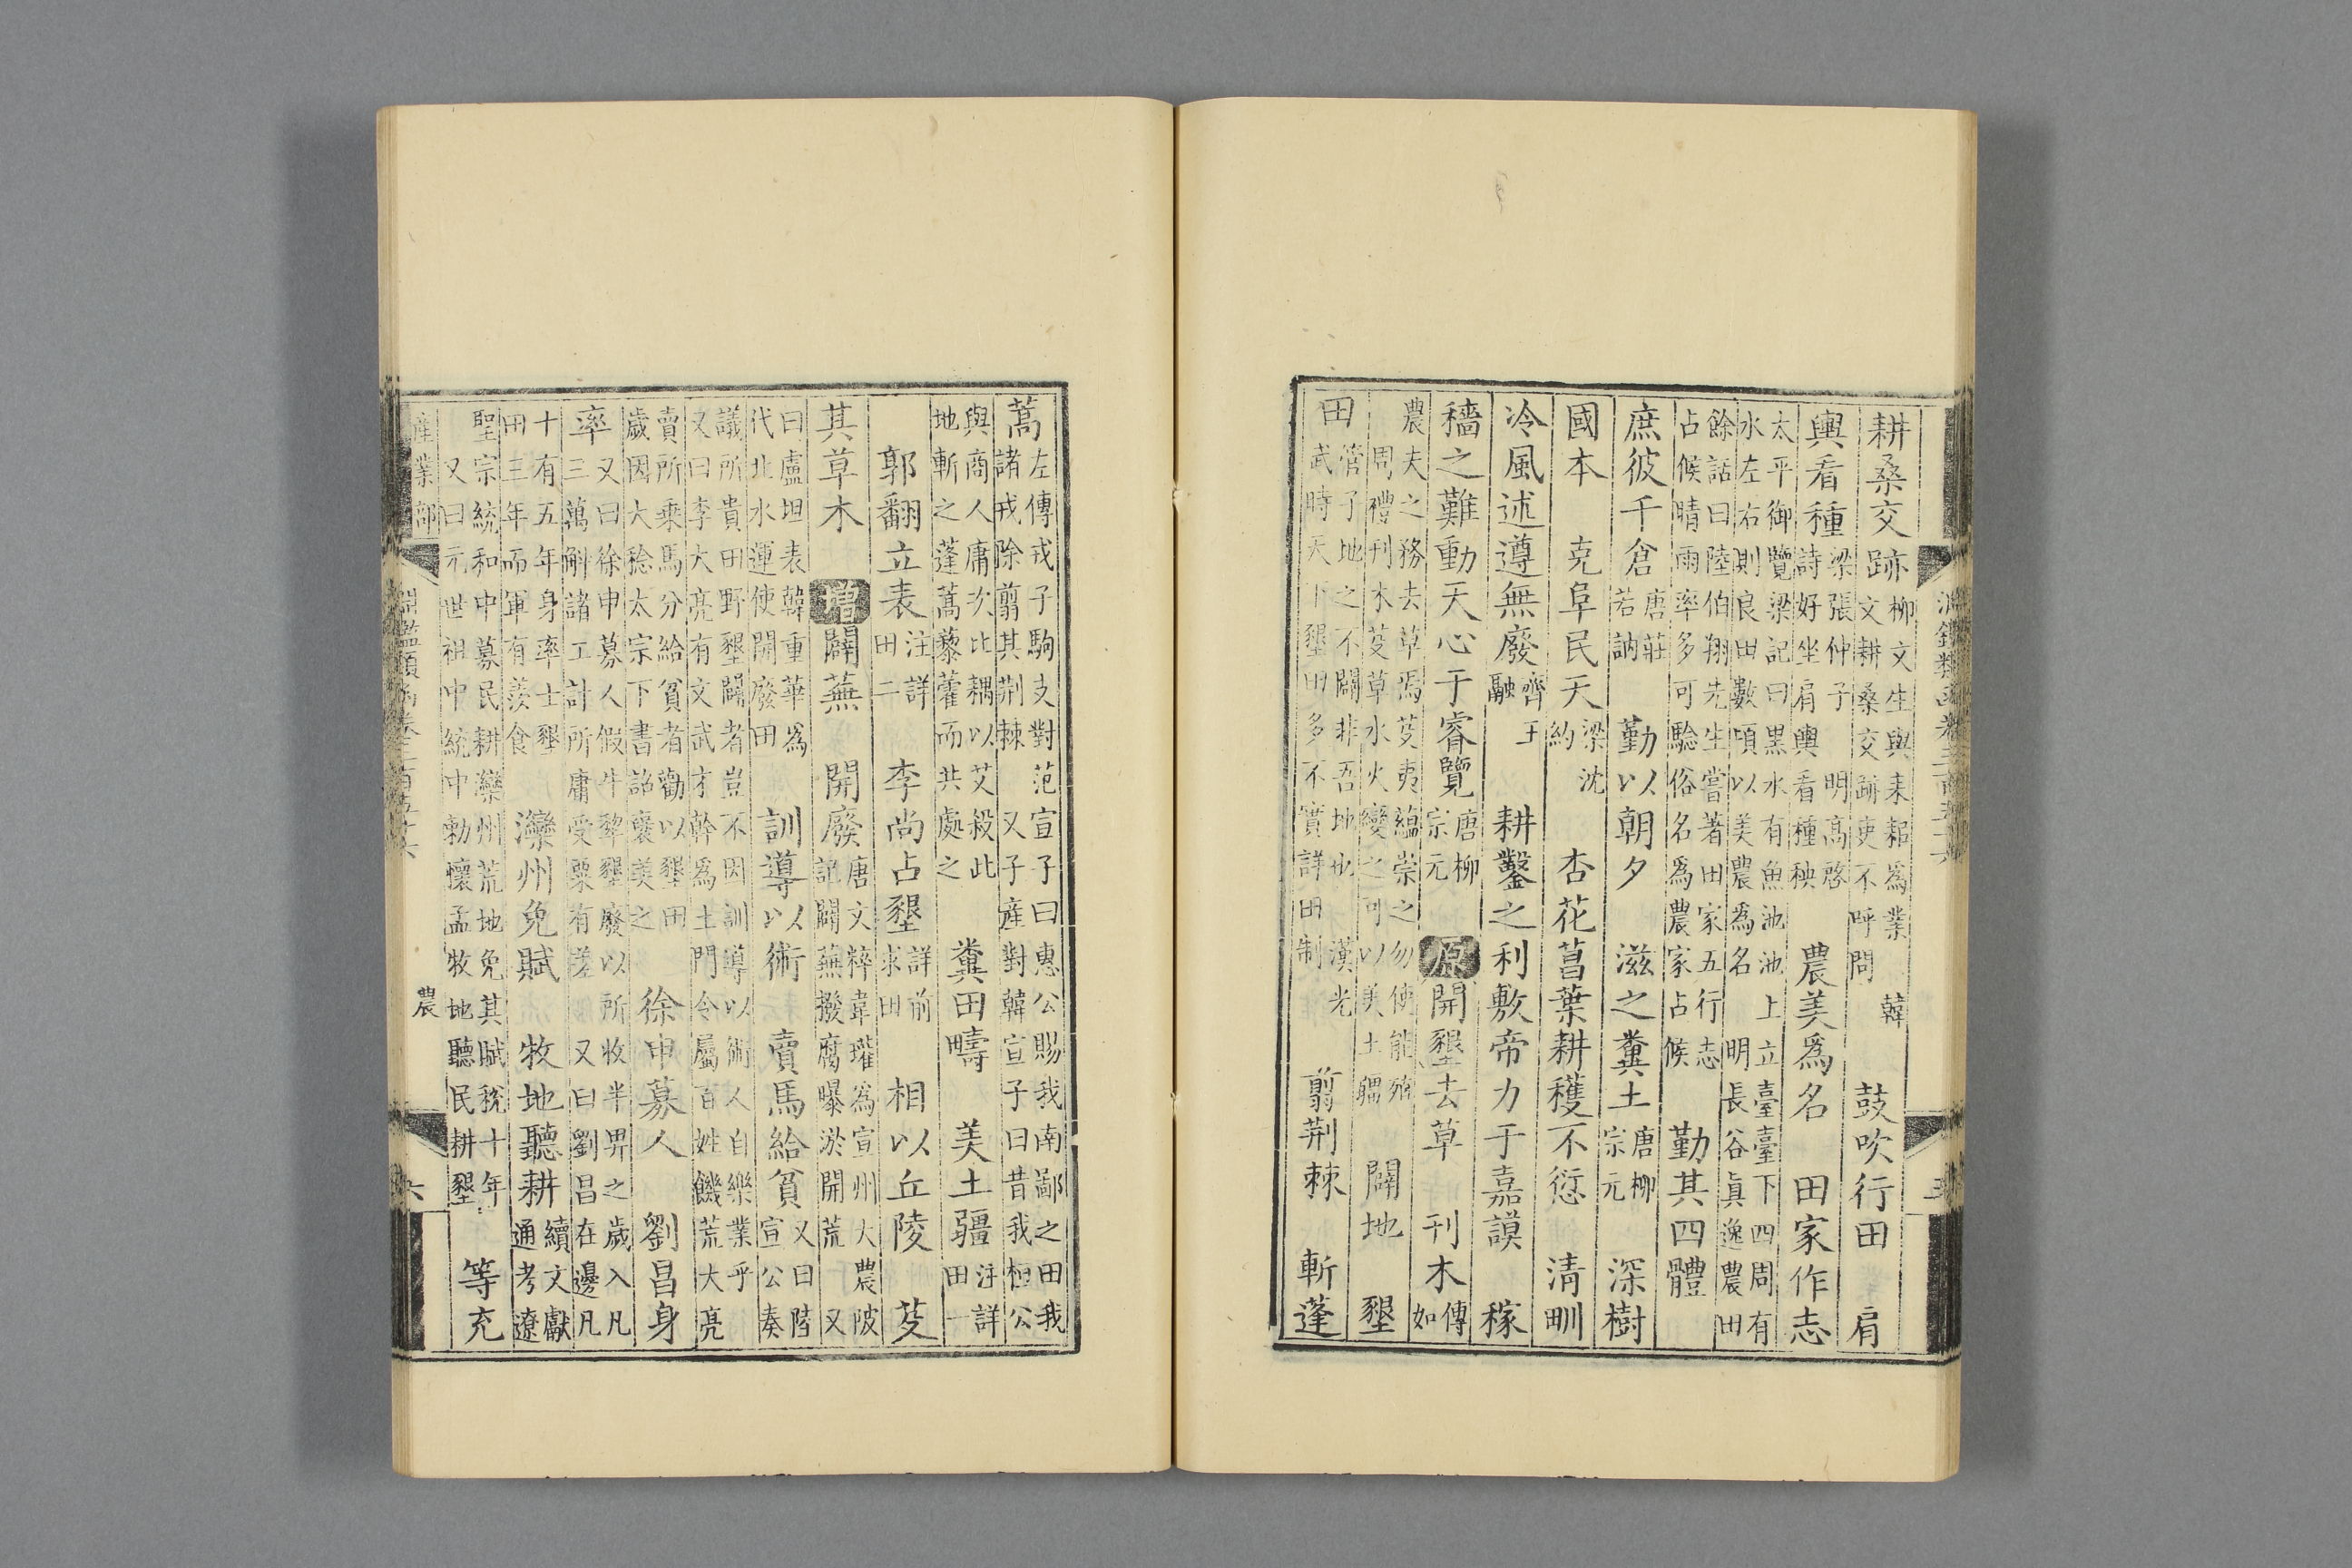 淵鑑類函卷三百五十六 五
耕桑交跡柳文生與耒耜爲業文耕耕桑交跡吏不呼問 韓 鼓吹行田 肩
輿看種梁張仲子 明高啓詩好坐肩輿看種秧 農美爲名 田家作志
太平御覽梁記曰黑水有魚池池上立臺臺下四周有水左右則良田數頃以美農爲名 明長谷眞逸農田
餘話曰陸伯翔先生嘗著田家五行志占候晴雨率多可驗俗名爲農家占候 勤其四體
庶彼千倉唐莊若訥 勤以朝夕 滋之糞土唐柳宗元 深樹
國本 克阜民天梁沈約 杏花菖葉耕穫不愆 清甽
冷風述遵無廢齊王融 耕鑿之利敷帝力于嘉謨 稼
穡之難動天心于睿覽唐柳宗元 原開墾去草 刊木傳如
農夫之務去草焉芟夷蘊崇之勿使能殖周禮刊木芟草水火變之可以美土疆 闢地 墾
田管子地之不闢非吾地也 漢光武時天下墾田多不實詳田制 翦荆棘 斬蓬
蒿左傳戎子駒支對范宣子曰惠公賜我南鄙之田我諸戎除翦其荆棘 又子産對韓宣子曰昔我桓公
與商人庸次比耦以艾殺此地斬之蓬蒿藜藿而共處之 糞田疇 美土疆注詳田一
郭翻立表注詳田二 李尚占墾詳前求田 相以丘陵 芟
其草木 增闢蕪 開廢唐文粹韋瓘爲宣州大農陂記闢蕪撥腐曝淤開荒 又
曰盧坦表韓重華爲代北水運使開廢田 訓導以術 賣馬給貧又曰陸宣公奏
議所貴田野墾闢者豈不因訓導以術人自樂業乎又曰李大亮有文武才幹爲土門令屬百姓饑荒大亮
賣所乘馬分給貧者勸以墾田歲因大稔太宗下書詔褒美之 徐申募人 劉昌身
率又曰徐申募人假牛犂墾廢以所收半畀之歲入凡三萬斛諸工計所庸受粟有差 又曰劉昌在邊凡
十有五年身率士墾田三年而軍有羨食 灤州免賦 牧地聽耕續文獻通考遼
聖宗統和中募民耕灤州荒地免其賦稅十年又曰元世祖中統中勅懷孟牧地聽民耕墾 等充
産業部 淵鑑類函卷三百五十六 農 六